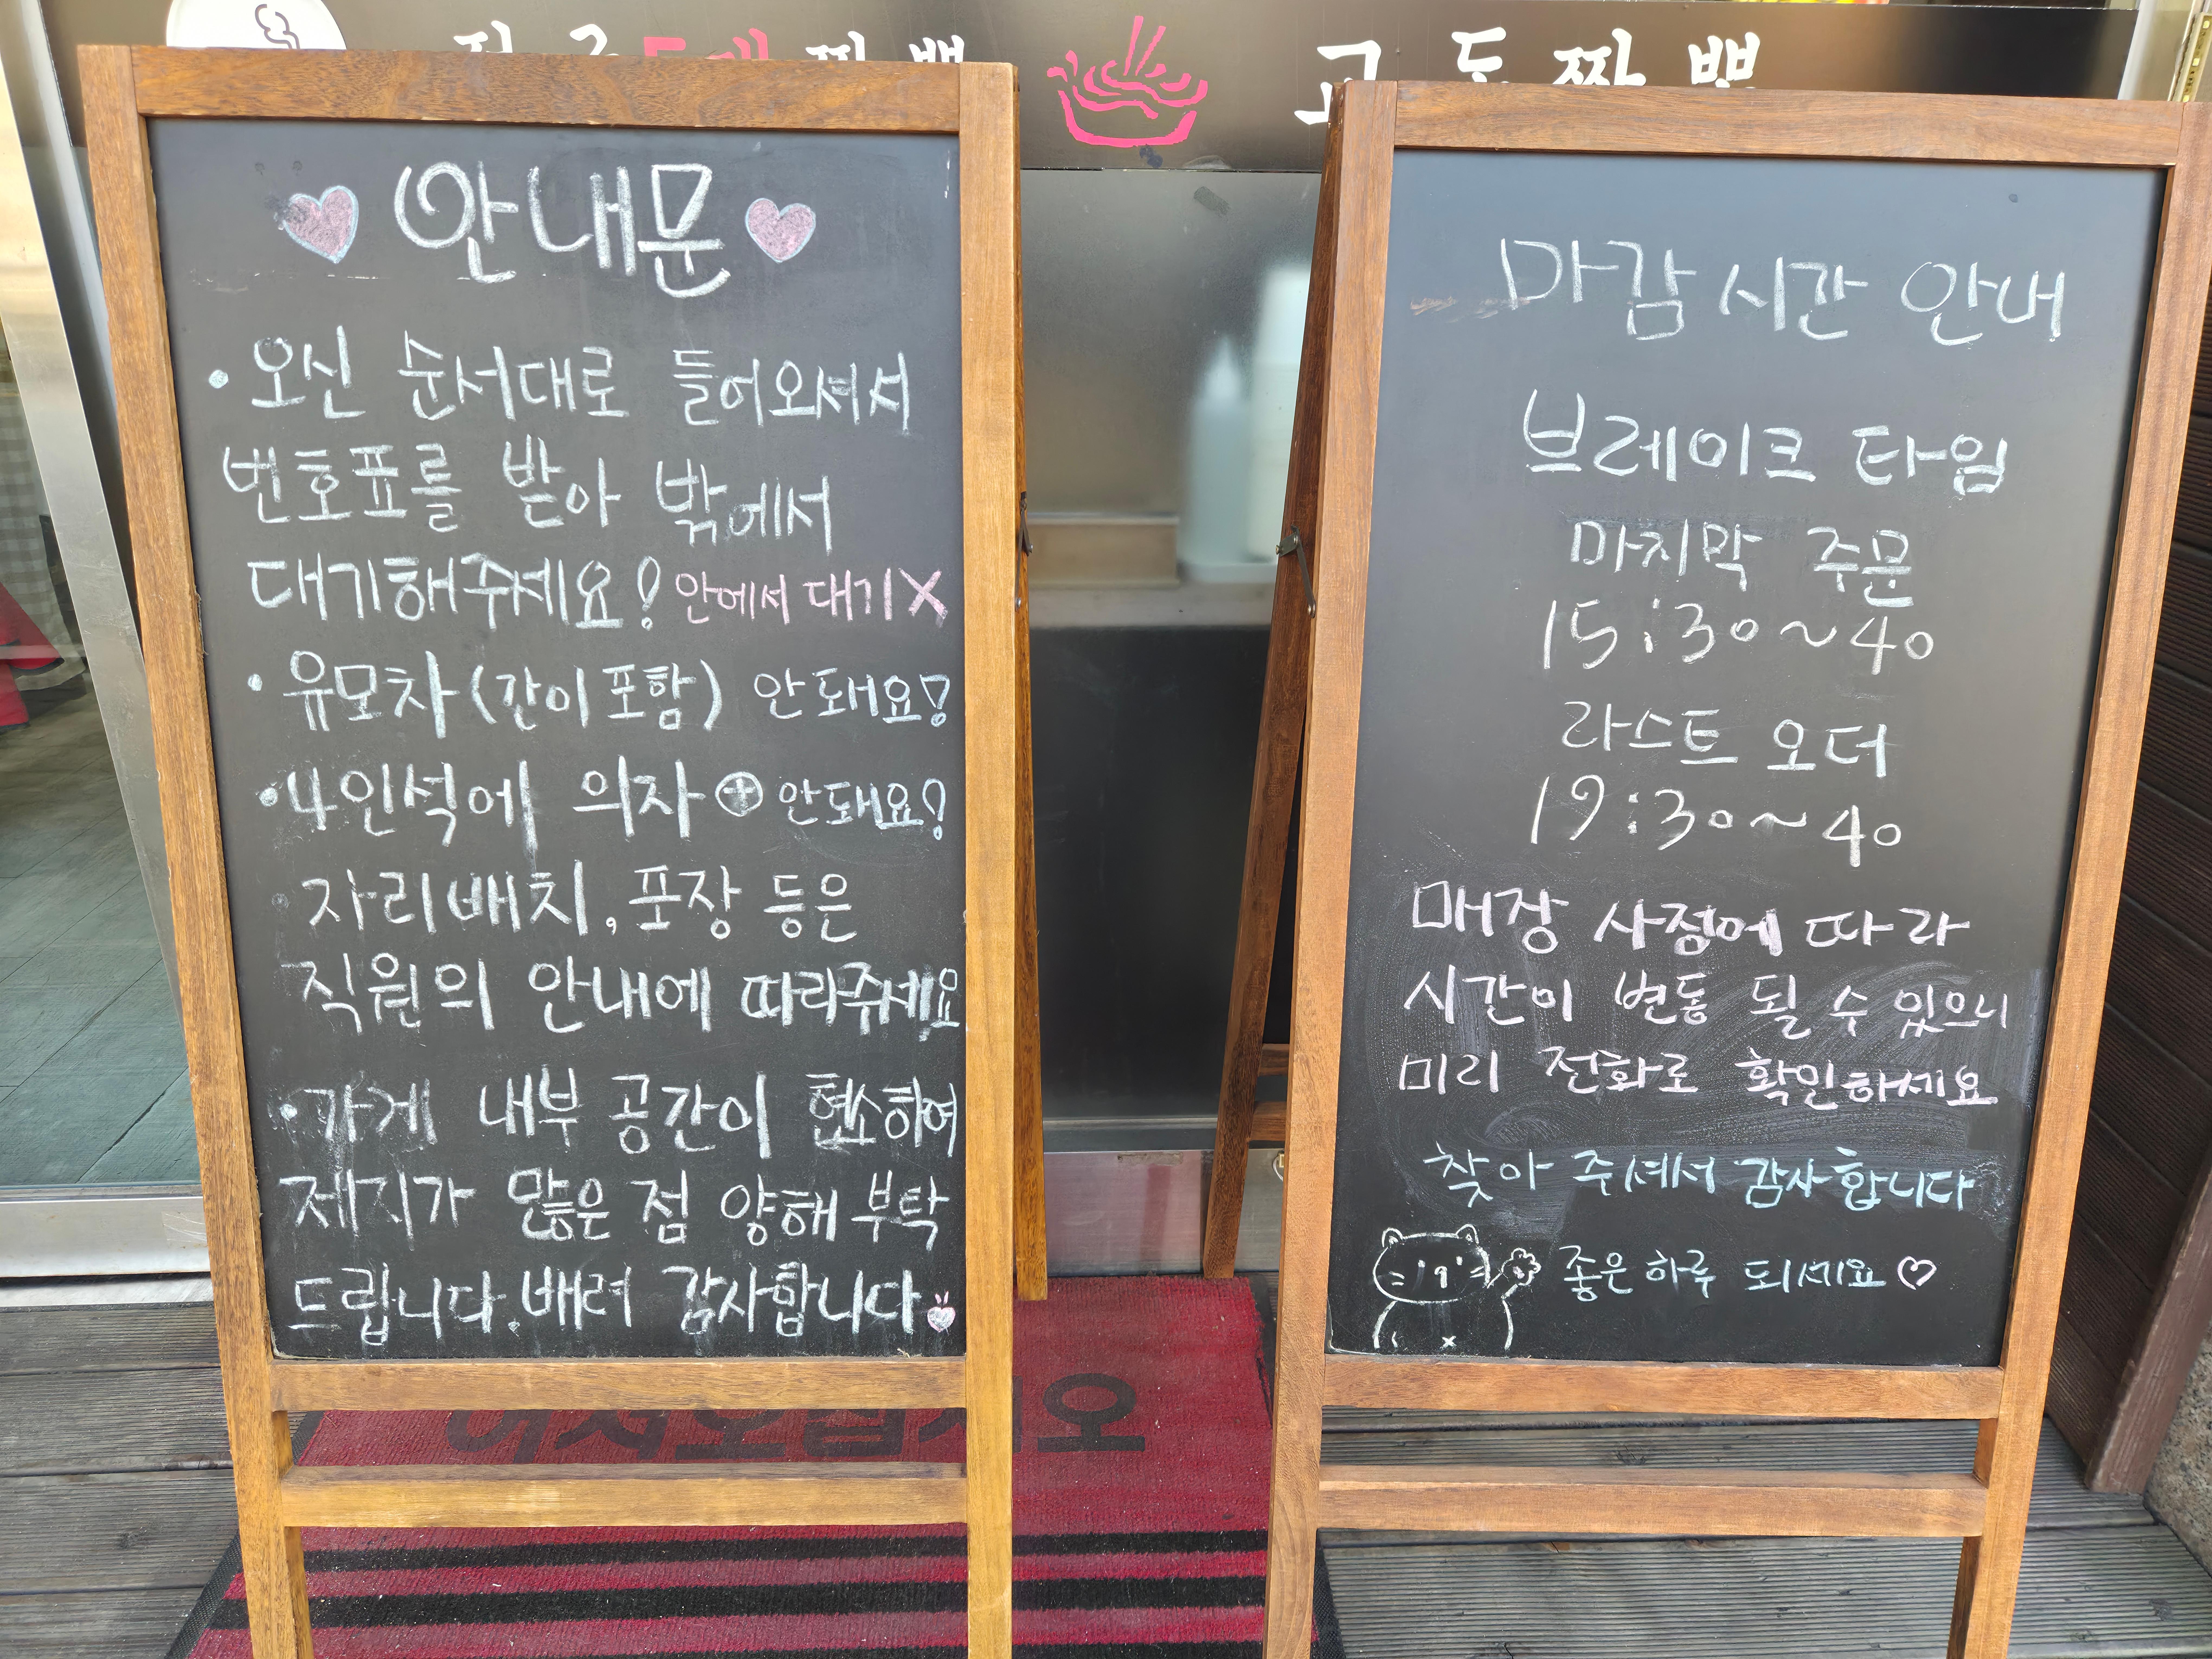 짬뽕
교동짬뽕
안내문
• 오신 순서대로 들어오셔서
번호표를 받아 밖에서
대기해주세요! 안에서 대기X
• 유모차(간이포함) 안돼요!
• 4인석에 의자⊕안돼요!
자리배치, 포장 등은
직원의 안내에 따라주세요
• 가게 내부 공간이 협소하여
제지가 많은 점 양해 부탁
드립니다. 배려 감사합니다
마감시간 안내
브레이크 타임
마지막 주문
15:30~40
라스트 오더
19:30~40
매장 사정에 따라
시간이 변동 될 수 있으니
미리 전화로 확인하세요
찾아 주셔서 감사합니다
좋은하루 되세요♡
어서오십시오